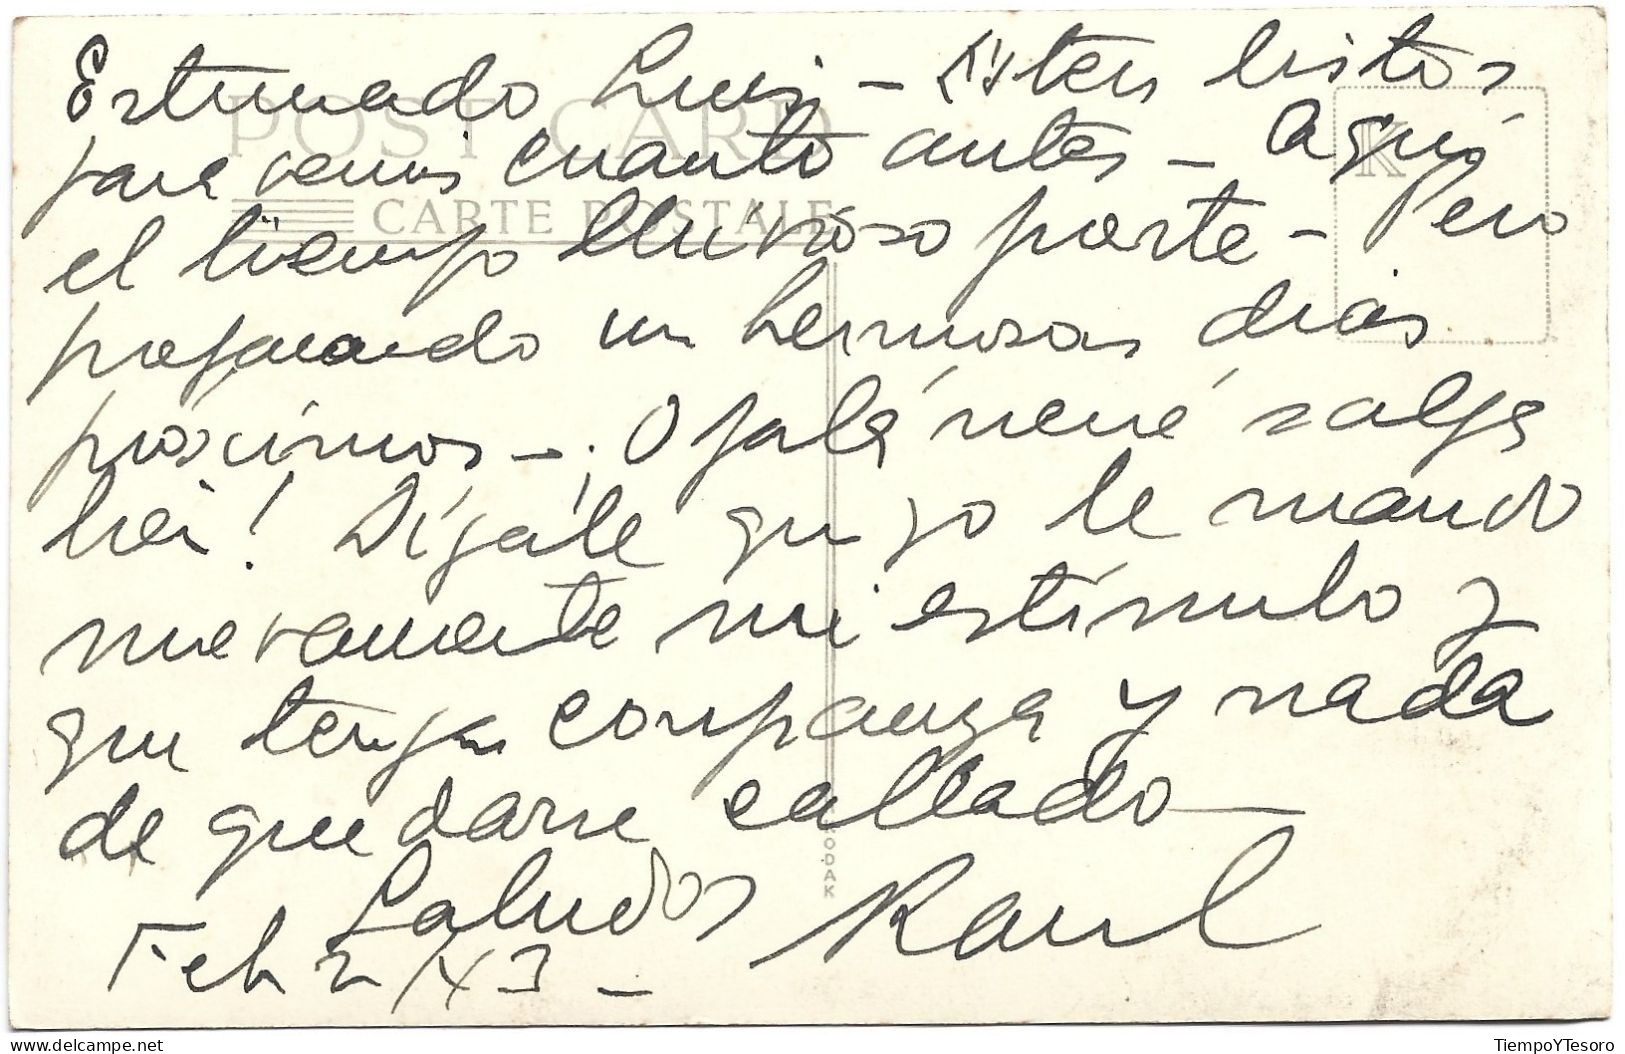 Estimado Luis – Esten listos
para venir cuanto antes – Aquí
POST CARD
K
el tiempo lluvioso parte – Pero
CARTE POSTALE
preparando hermosos días
próximos – ¡Ojalá nené salga
bien! Dígale que yo le mando
nuevamente mi estímulo y
que tenga confianza y nada
de quedarse callado
KODAK
Saludos Raul
Feb 2/43 –
TiempoYTesoro
www.delcampe.net